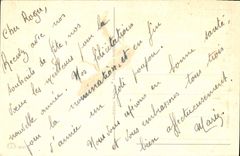 Cher Roger,
Recevez avec nos
souhaits de fête, nos
vœux les meilleurs pour la
nouvelle année. Nos félicitations
pour la nomination et en fin
d'année un joli poupon.
Nous vous espérons en bonne santé,
et vous embrassons tous trois
bien affectueusement.